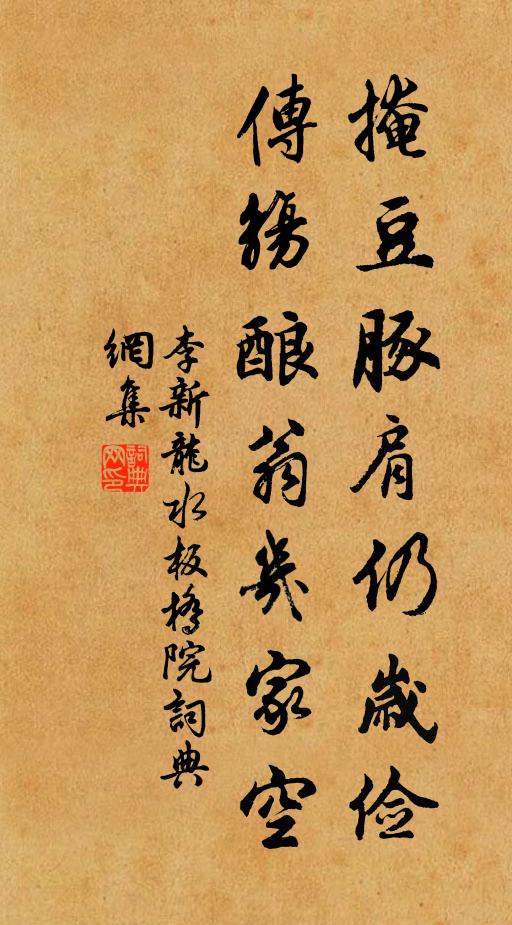 掩豆豚肩仍歲儉
傳觴酿翁幾家空
李新龍水板橋院詞典
網集
詞典
网印